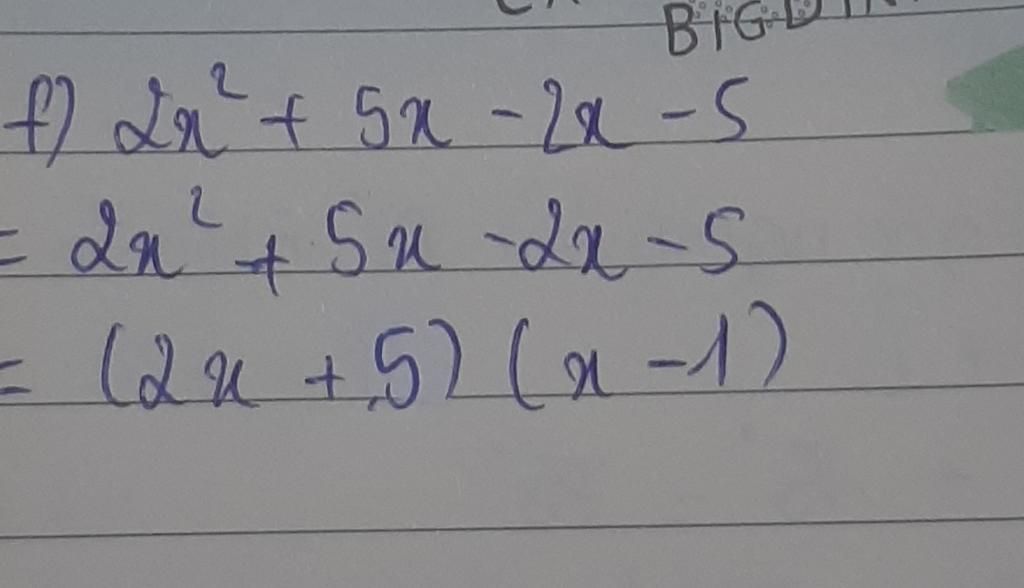 f) 2x² + 5x - 2x - 5
= 2x² + 5x - 2x - 5
= (2x + 5) (x - 1)